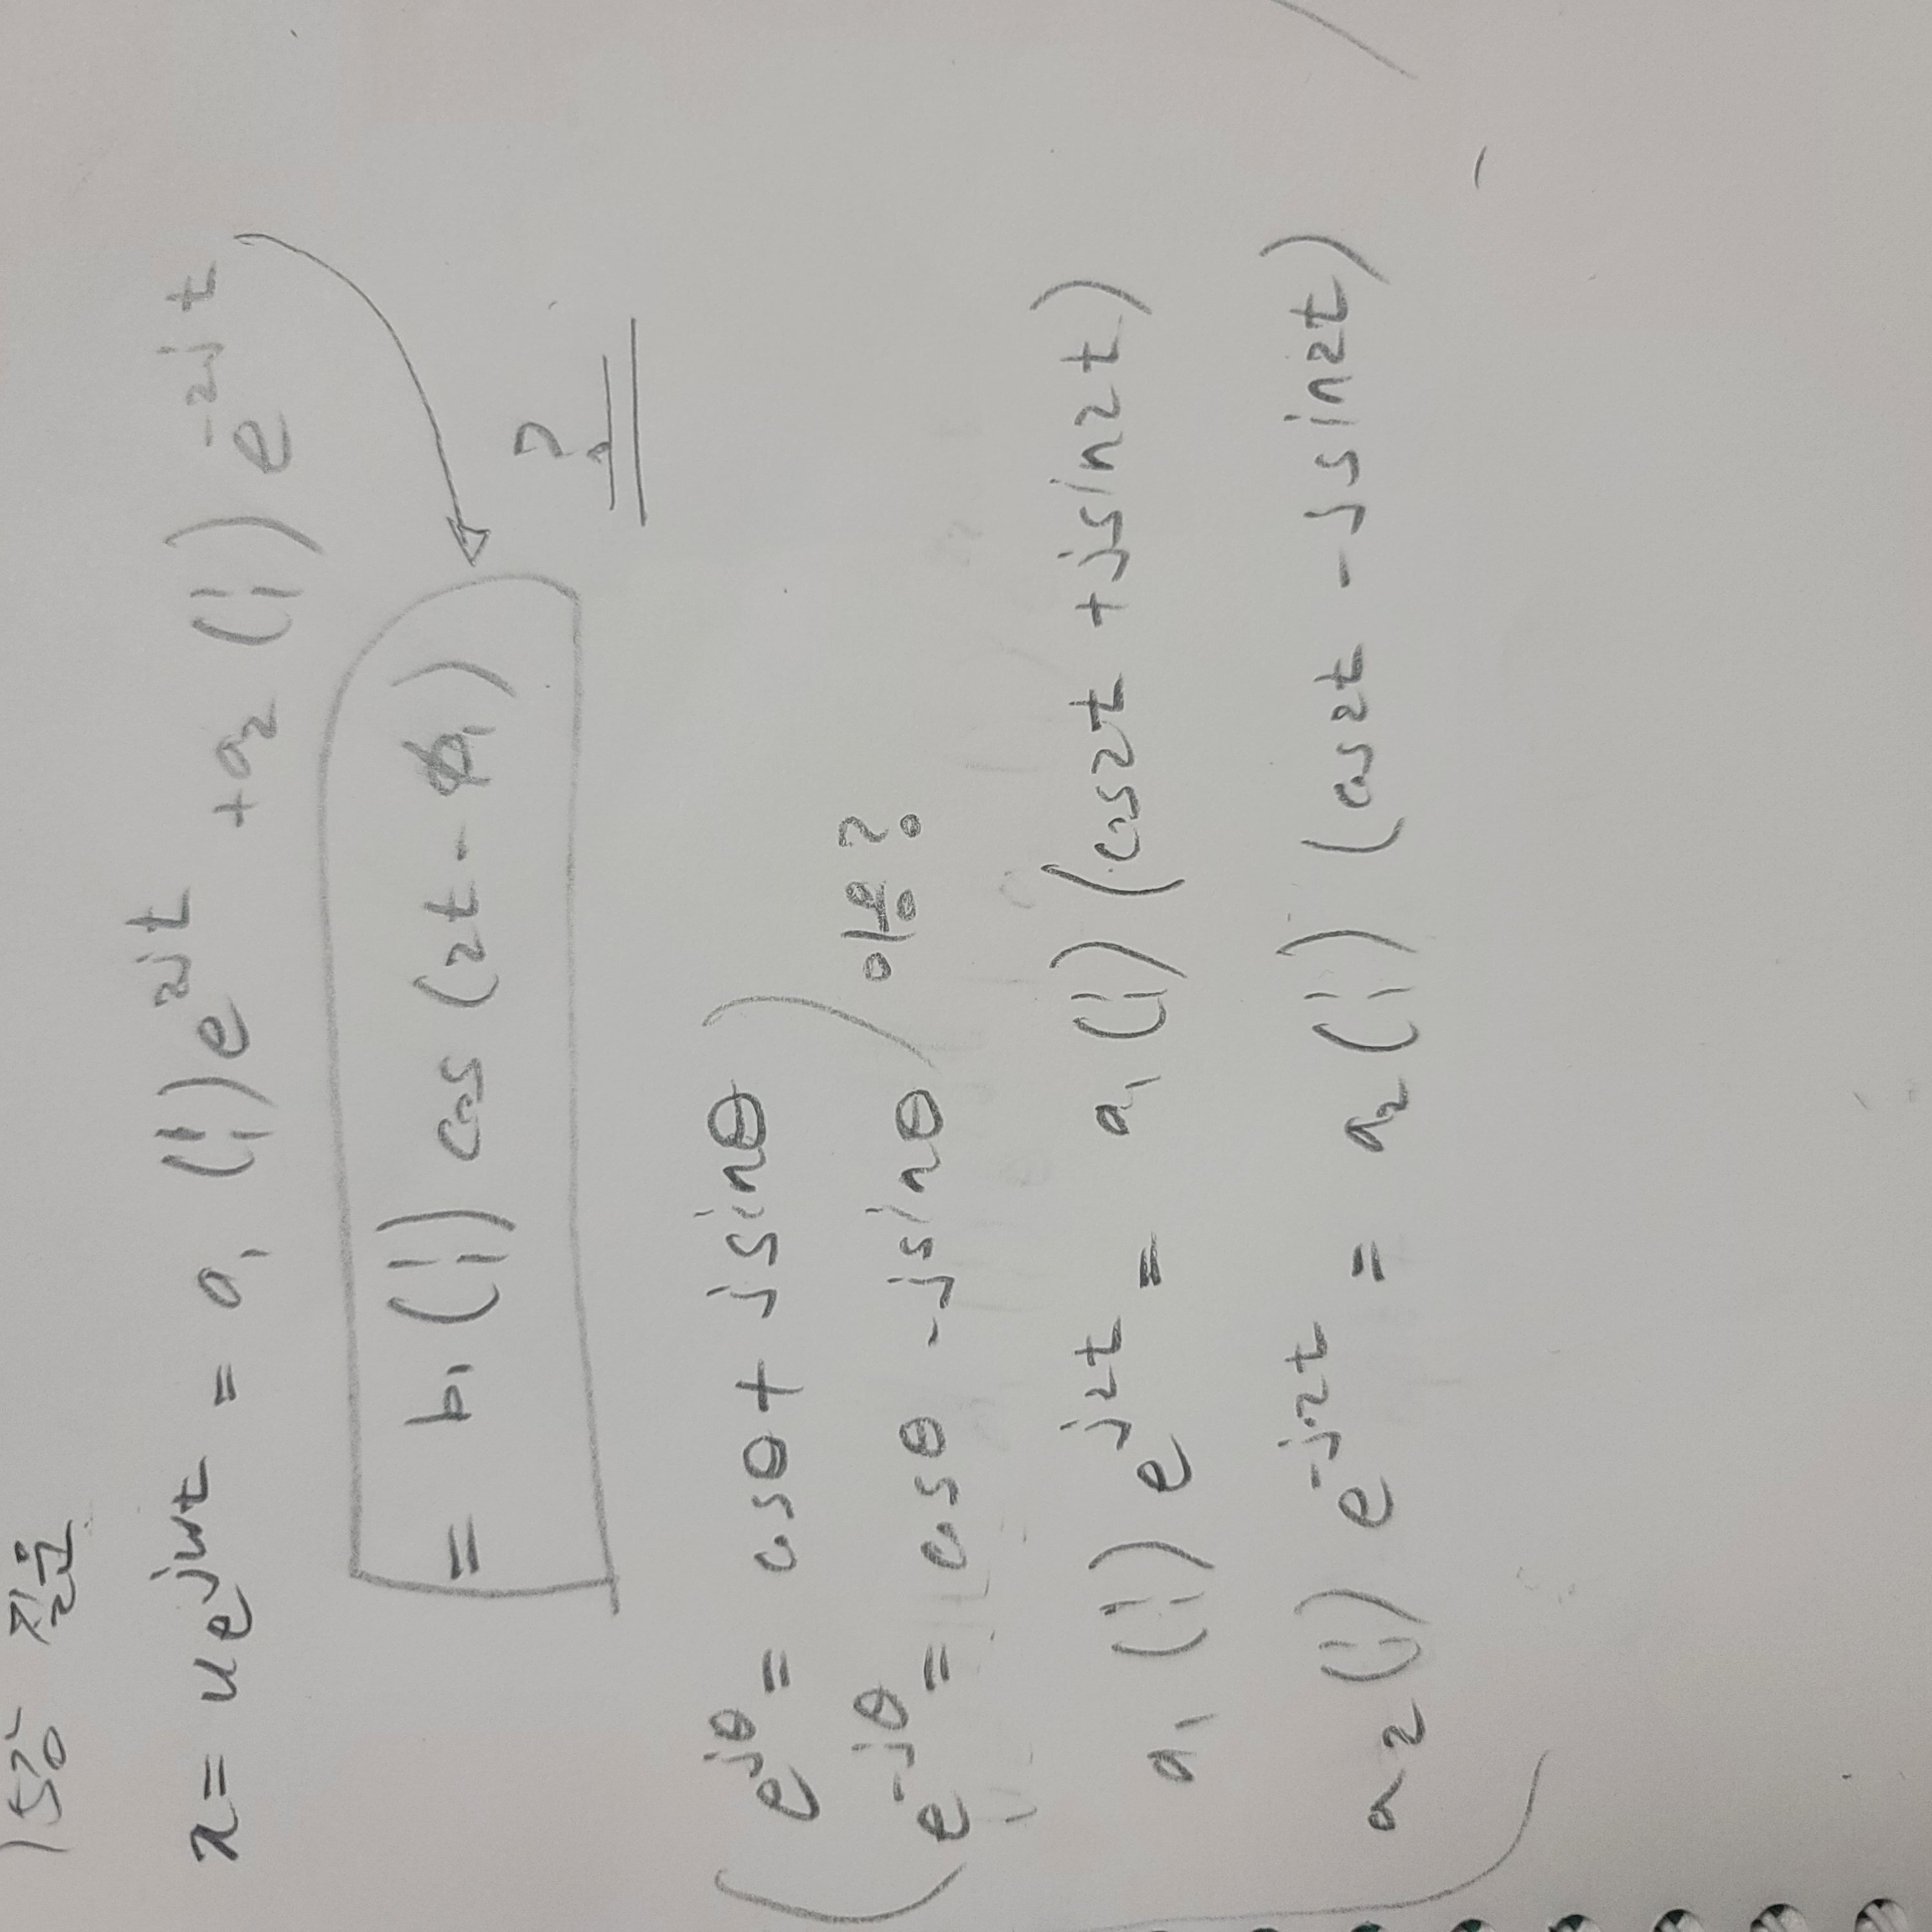 x = u e^jωt = a₁ (1 1) e^2jt + a₂ (1 1) e^-2jt
= b₁ (1 1) cos (2t - φ₁) ?
e^jθ = cosθ + jsinθ
e^-jθ = cosθ - jsinθ 이용?
a₁ (1 1) e^j2t = a₁ (1 1) (cos2t + jsin2t)
a₂ (1 1) e^-j2t = a₂ (1 1) (cos2t - jsin2t)